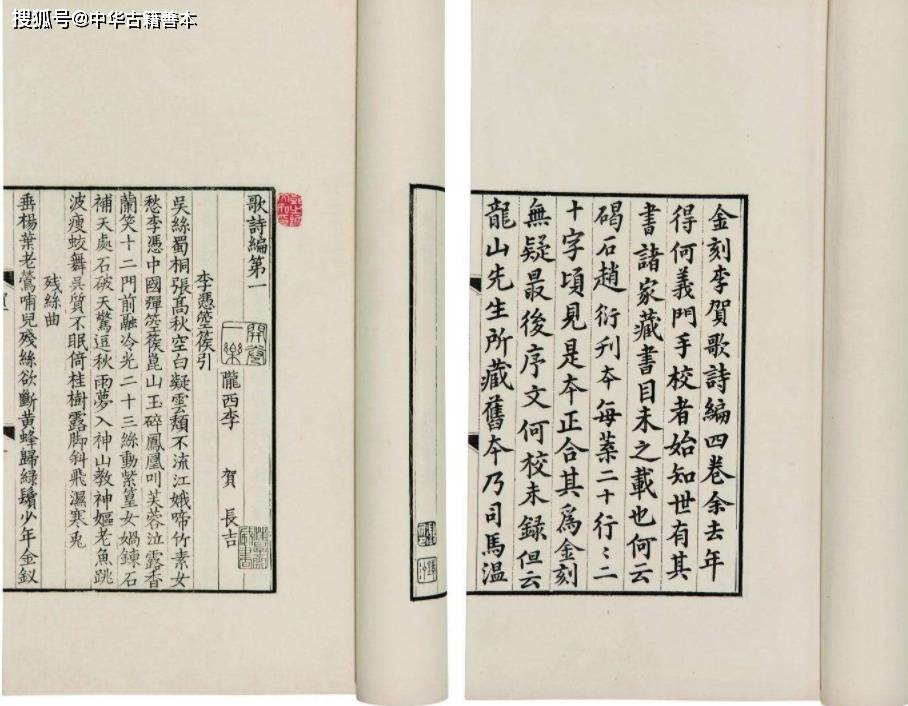 搜狐号@中华古籍善本
歌詩編第一
開卷一樂
隴西李 賀 長吉
李憑箜篌引
吳絲蜀桐張髙秋空白凝雲頹不流江娥啼竹素女
愁李憑中國彈箜篌崑山玉碎鳳凰叫芙蓉泣露香
蘭笑十二門前融冷光二十三絲動紫篁女媧鍊石
補天處石破天驚逗秋雨夢入神山教神嫗老魚跳
波瘦蛟舞吳質不眠倚桂樹露脚斜飛濕寒兎
殘絲曲
垂楊葉老鶯哺兒殘絲欲斷黄蜂歸綠鬢少年金釵
金刻李賀歌詩編四卷余去年
得何義門手校者始知世有其
書諸家藏書目未之載也何云
碣石趙衍刋本每葉二十行〻二
十字頃見是本正合其爲金刻
無疑最後序文何校未録但云
龍山先生所藏舊本乃司馬溫